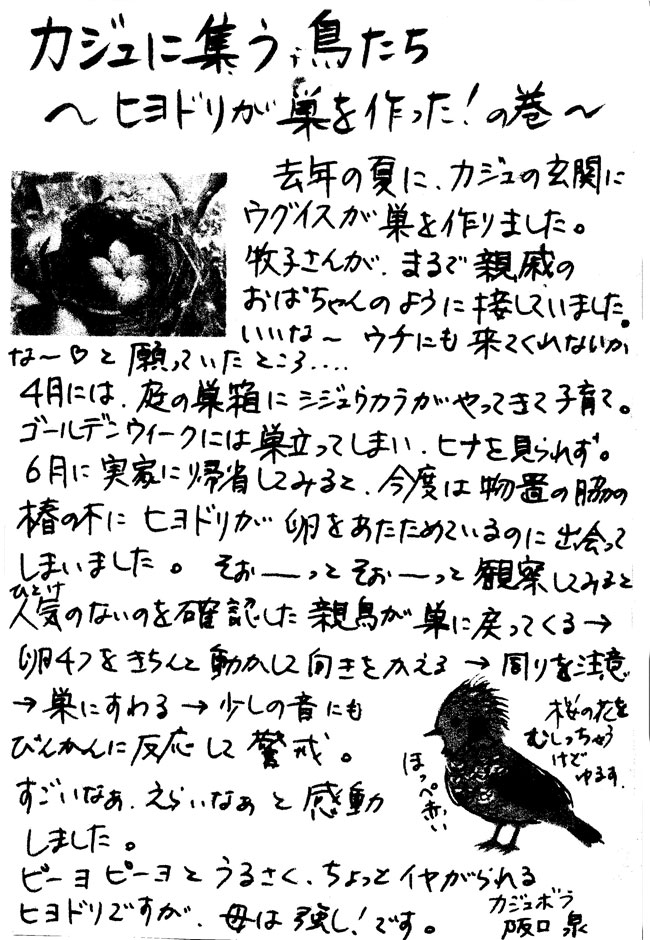 カジュに集う鳥たち
～ヒヨドリが巣を作った!の巻～
去年の夏に、カジュの玄関に
ウグイスが巣を作りました。
牧子さんが、まるで親戚の
おばちゃんのように接していました。
いいな～ ウチにも来てくれないか
な～♡と願っていたところ....
4月には、庭の巣箱にシジュウカラがやってきて子育て。
ゴールデンウィークには巣立ってしまい、ヒナを見られず。
6月に実家に帰省してみると、今度は物置の脇の
椿の木にヒヨドリが卵をあたためているのに出会って
しまいました。そぉーっとそぉーっと観察してみると
ひとけ
人気のないのを確認した親鳥が巣に戻ってくる→
卵4つをきちんと動かして向きをかえる→周りを注意
→巣にすわる→少しの音にも
びんかんに反応して警戒。
すごいなぁ、えらいなぁと感動
しました。
ピーヨピーヨとうるさく、ちょっとイヤがられる
ヒヨドリですが、母は強し!です。
ほっぺ赤い
桜の花を
むしっちゃう
けど
ゆるす.
カジュボラ
阪口 泉